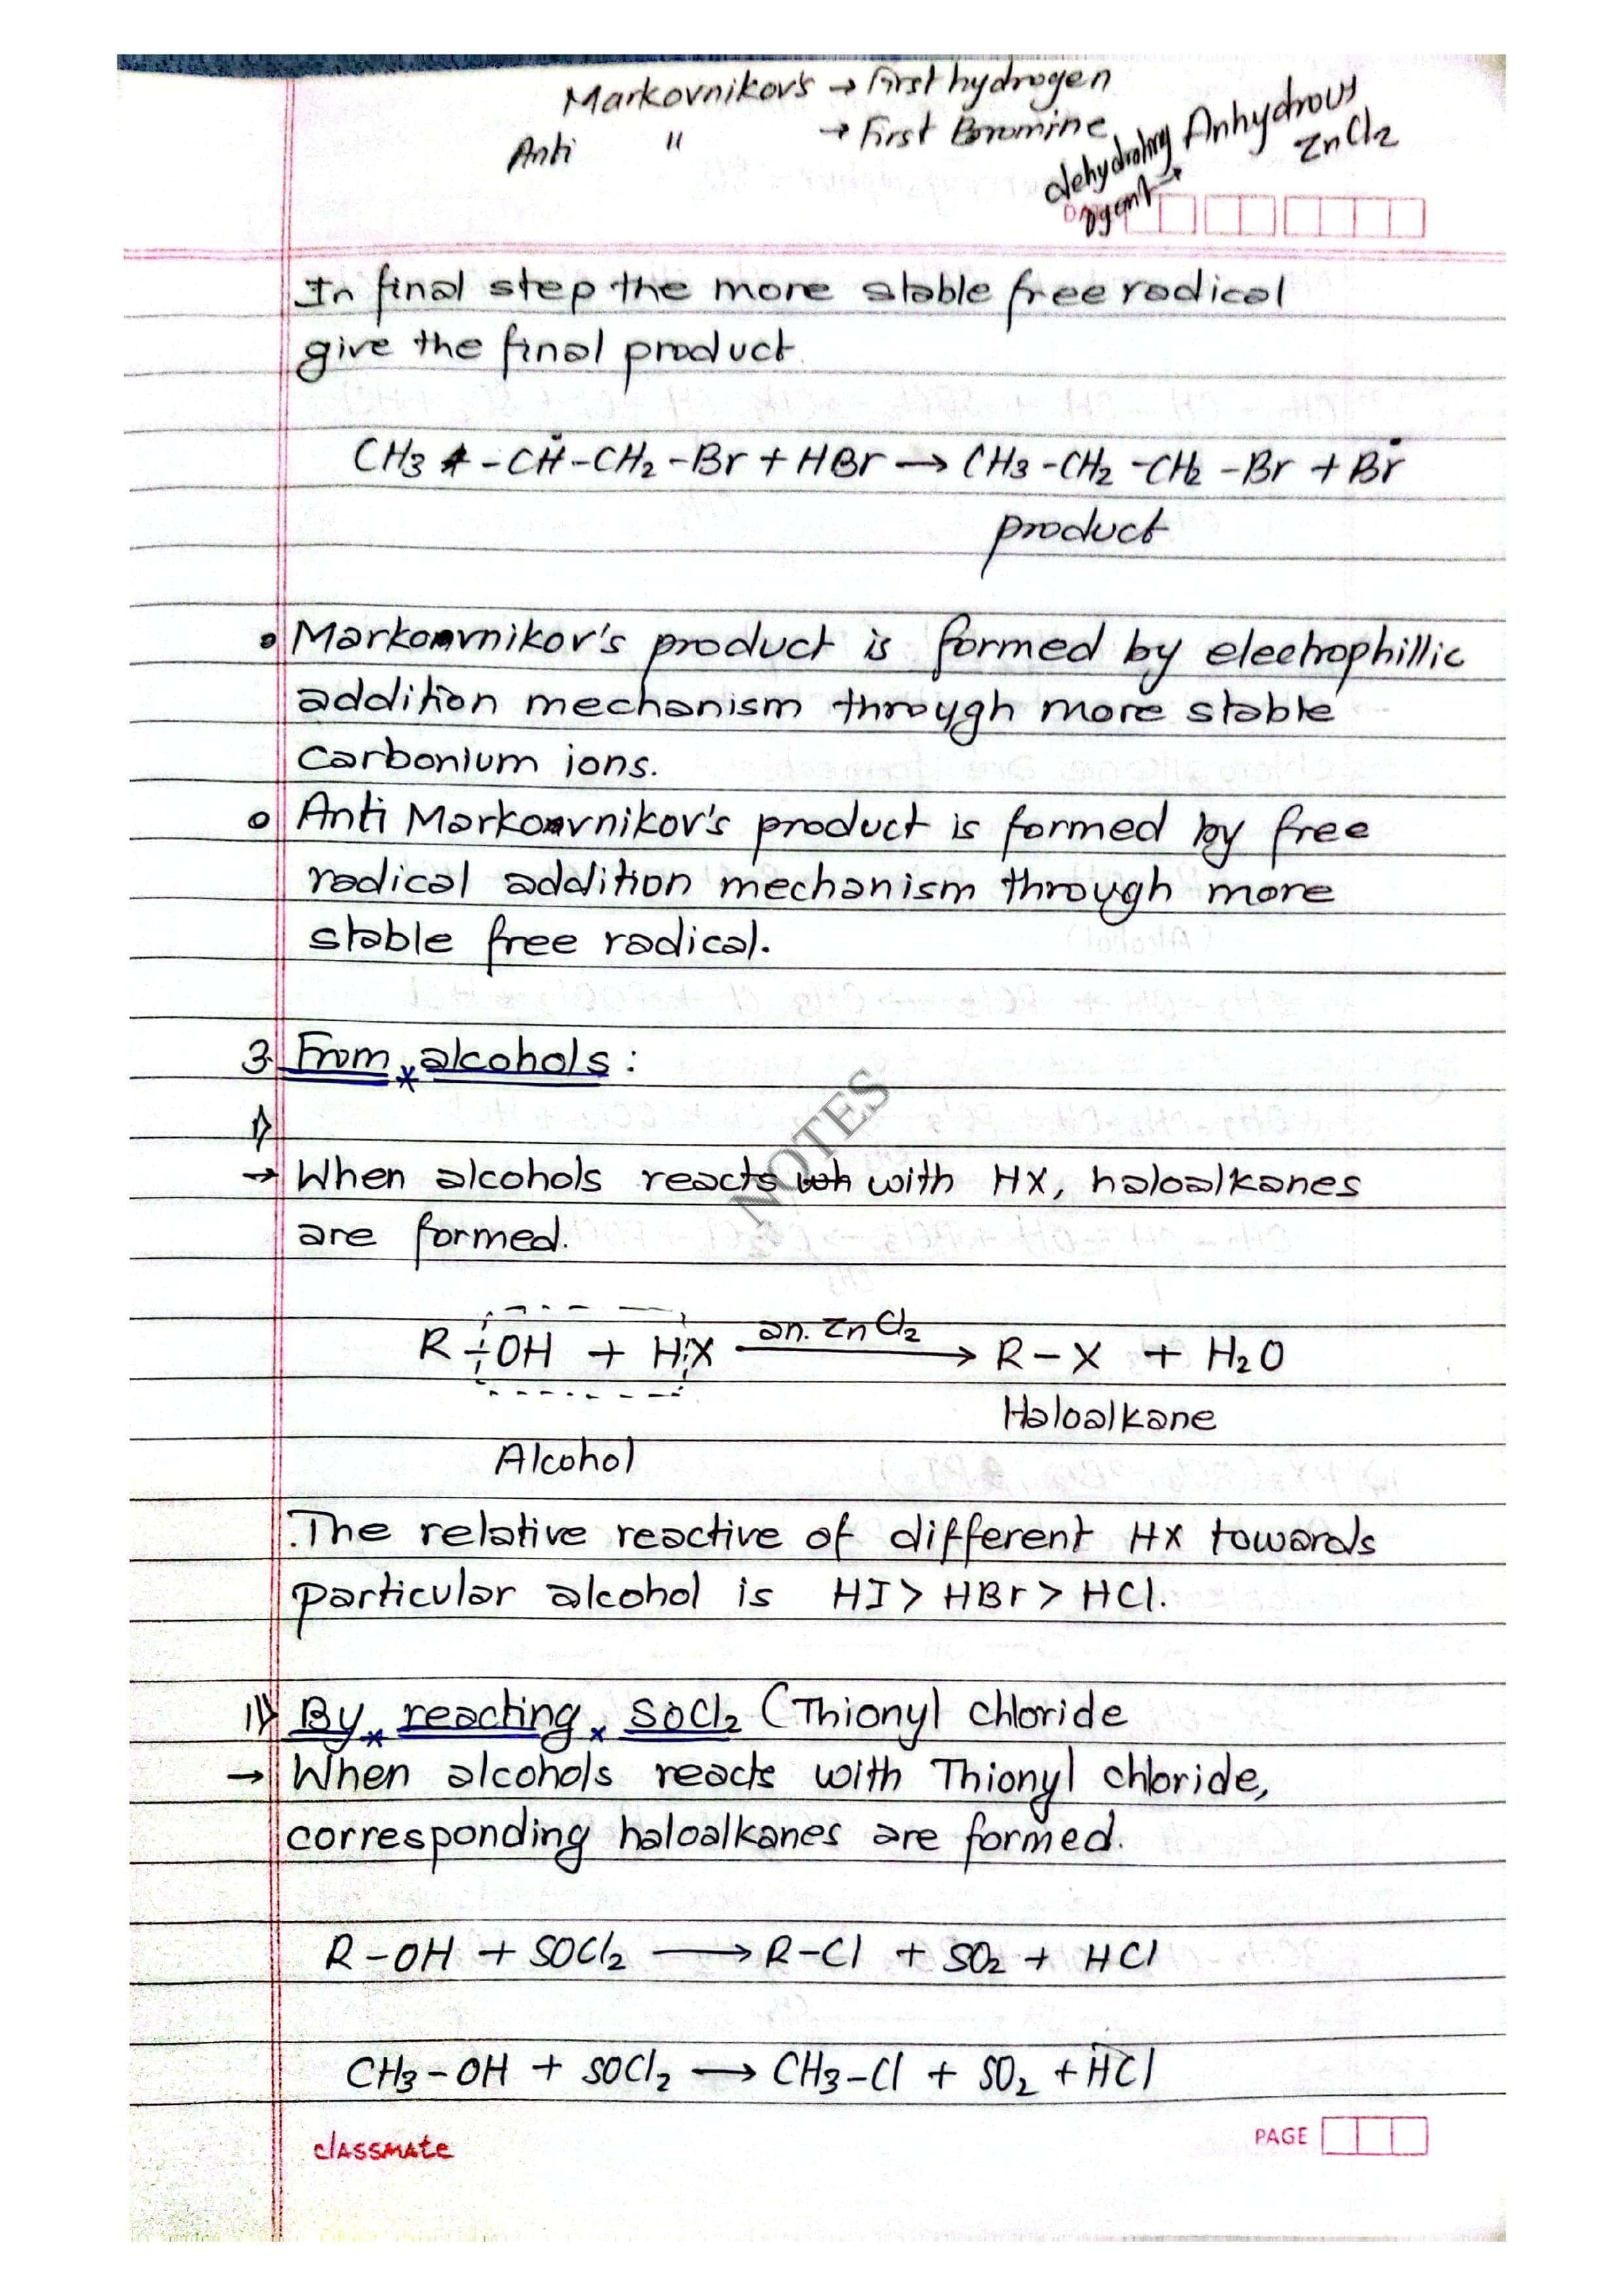 Markovnikov's → First hydrogen
Anti " → First Boromine
dehydrating agent → Anhydrous ZnCl₂
In final step the more stable free radical
give the final product
CH₃ - CḢ - CH₂ - Br + HBr → CH₃ - CH₂ - CH₂ - Br + Ḃr
product
• Markovnikov's product is formed by electrophillic
addition mechanism through more stable
carbonium ions.
o Anti Markovnikov's product is formed by free
radical addition mechanism through more
stable free radical.
3. From alcohols :
i)
→ When alcohols reacts with HX, haloalkanes
are formed.
R - OH + HX —an. ZnCl₂→ R - X + H₂O
Haloalkane
Alcohol
.The relative reactive of different HX towards
particular alcohol is HI > HBr > HCl.
ii) By reacting SOCl₂ (Thionyl chloride
→ When alcohols reacts with Thionyl chloride,
corresponding haloalkanes are formed.
R - OH + SOCl₂ → R - Cl + SO₂ + HCl
CH₃ - OH + SOCl₂ → CH₃ - Cl + SO₂ + HCl
classmate
PAGE
NOTES